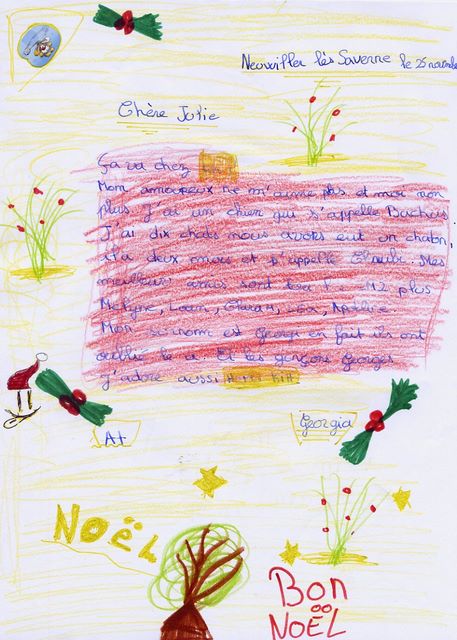 Neuwiller lès Saverne le 25 novembre
Chère Julie
Ça va chez
Mon amoureux ne m'aime pas et moi non
plus. J'ai un chien qui s'appelle Bachus.
J'ai dix chats nous avons eut un chaton,
il a deux mois et s'appelle. Mes
meilleur amis sont tout plus
Loan, Léa,
Mon surnom est Georgi en fait ils ont
oublié le a. Et les garçons Georges
j'adore aussi
A+
Georgia
NOËL
BON
NOËL